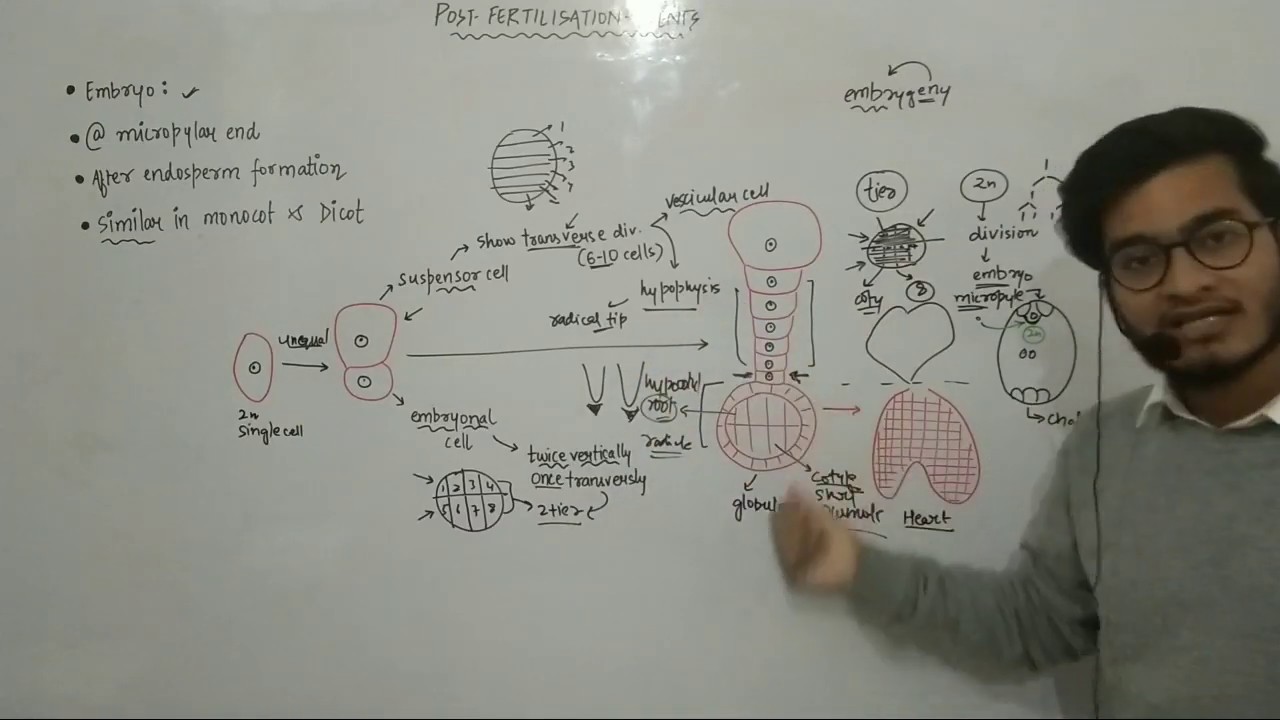 POST-FERTILISATION
• Embryo: ✓
• @ micropylar end
• After endosperm formation
• Similar in monocot & Dicot
embrygeny
1
2
3
4
vescicular cell
show transverse div.
(6-10 cells)
suspensor cell
hypophysis
radical tip
unequal
2n
single cell
embryonal
cell
twice vertically
once transversly
2 tier
1 2 3 4
5 6 7 8
hypocotyl
root
radicle
cotyle
globul
Heart
tier
coty
8
2n
division
embryo
micropyle
2n
1